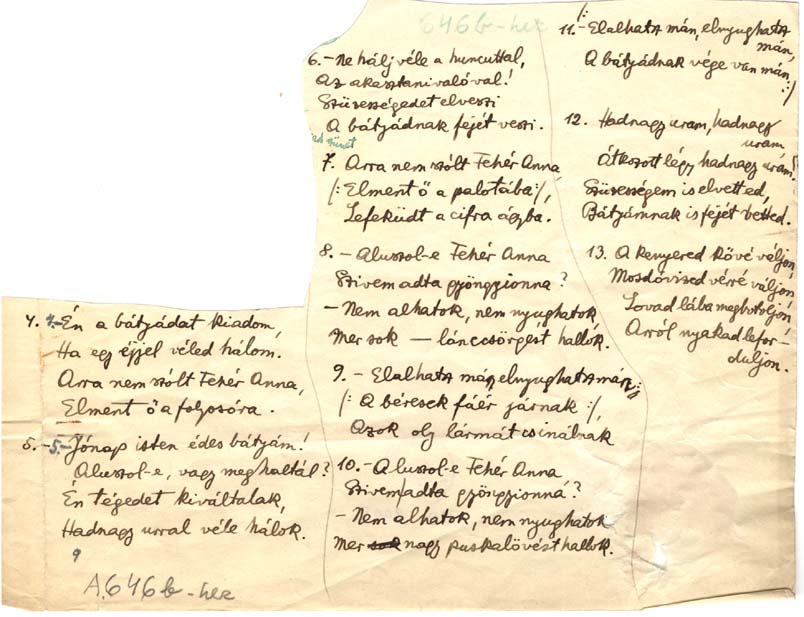 646b-hez
4. 4.- Én a bátyádat kiadom,
Ha egy éjjel véled hálom.
Arra nem szólt Fehér Anna,
Elment ő a folyosóra.
5. -5.- Jónap isten édes bátyám!
Aluszol-e, vagy meghaltál?
Én tégedet kiváltalak,
Hadnagy urral véle hálok.
9
A.646b-hez
6. - Ne hálj véle a huncuttal,
Az akasztani valóval!
Szüzességedet elveszi
A bátyádnak fejét veszi.
7. Arra nem szólt Fehér Anna
/: Elment ő a palotába :/,
Lefeküdt a cifra ágyba.
8. - Aluszol-e Fehér Anna
Szivem adta gyöngyionna?
- Nem alhatok, nem nyughatok,
Mer sok — lánccsörgést hallok.
9. - Elalhatz mán, elnyughatz mán,
/: A béresek fáér járnak :/,
Azok olj lármát csinálnak
10. - Aluszol-e Fehér Anna
Szivem adta gyöngyionná?
- Nem alhatok, nem nyughatok
Mer sok nagy puskalövést hallok.
/:
11. - Elalhatz mán, elnyughatz
mán,
A bátyádnak vége van mán,
:/
12. Hadnagy uram, hadnagy
uram
Átkozott légy hadnagy uram!
Szüzességem is elvetted,
Bátyámnak is fejét vetted.
13. A kenyered kövé váljon,
Mosdóvized vérré váljon
Lovad lába megbotoljon
Arról nyakad lefor-
duljon.